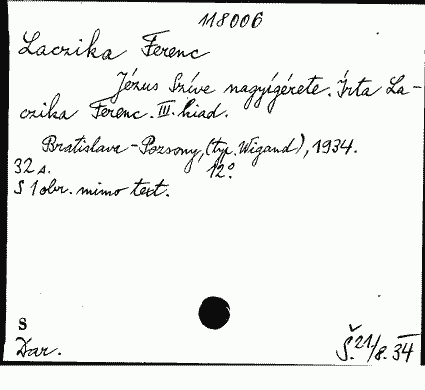 118006
Laczika Ferenc
Jézus Szíve nagyígérete. Írta La-
czika Ferenc. III. kiad.
Bratislava - Pozsony, (typ. Wigand), 1934.
32 s. 12°.
S 1 obr. mimo text.
S
Dar. Š. 21/8. 34